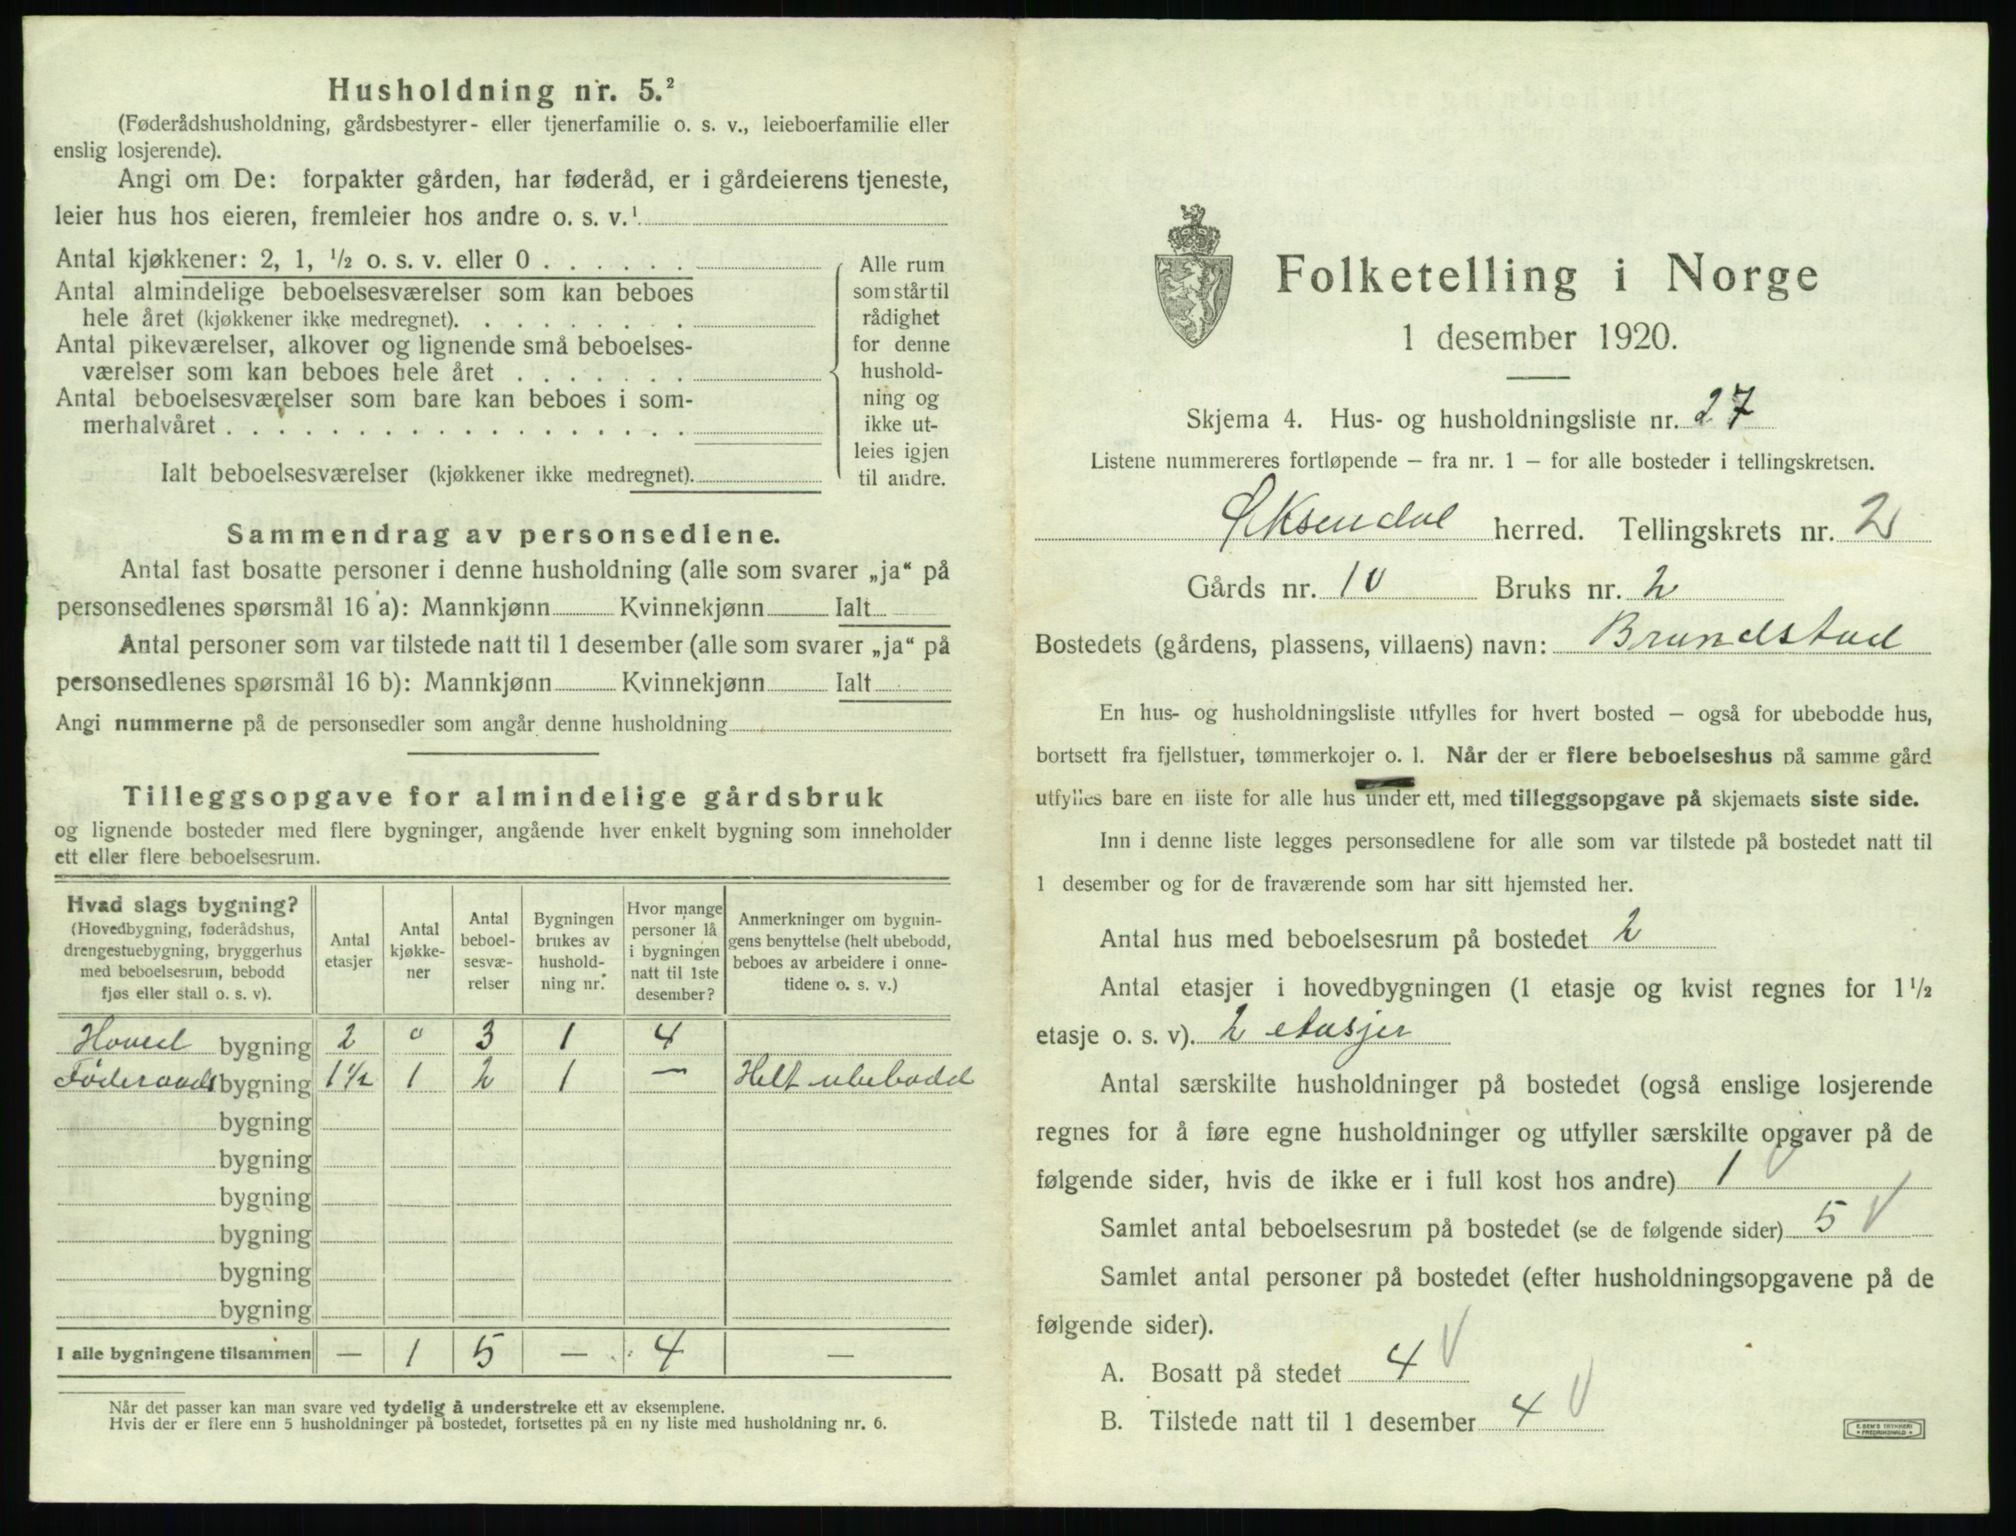 Husholdning nr. 5.²
(Føderådshusholdning, gårdsbestyrer- eller tjenerfamilie o. s. v., leieboerfamilie eller
enslig losjerende).
Angi om De: forpakter gården, har føderåd, er i gårdeierens tjeneste,
leier hus hos eieren, fremleier hos andre o. s. v.¹
Antal kjøkkener: 2, 1, ½ o. s. v. eller 0 . . . . . .
Antal almindelige beboelsesværelser som kan beboes
hele året (kjøkkener ikke medregnet). . . . . . . . .
Antal pikeværelser, alkover og lignende små beboelses-
værelser som kan beboes hele året . . . . . . .
Antal beboelsesværelser som bare kan beboes i som-
merhalvåret . . . . . . . . . . . . . . . . . .
Ialt beboelsesværelser (kjøkkener ikke medregnet).
Alle rum
som står til
rådighet
for denne
hushold-
ning og
ikke ut-
leies igjen
til andre.
Sammendrag av personsedlene.
Antal fast bosatte personer i denne husholdning (alle som svarer „ja“ på
personsedlenes spørsmål 16 a): Mannkjønn Kvinnekjønn Ialt
Antal personer som var tilstede natt til 1 desember (alle som svarer „ja“ på
personsedlenes spørsmål 16 b): Mannkjønn Kvinnekjønn Ialt
Angi nummerne på de personsedler som angår denne husholdning
Tilleggsopgave for almindelige gårdsbruk
og lignende bosteder med flere bygninger, angående hver enkelt bygning som inneholder
ett eller flere beboelsesrum.
Hvad slags bygning?
(Hovedbygning, føderådshus,
drengestuebygning, bryggerhus
med beboelsesrum, bebodd
fjøs eller stall o. s. v).
Antal
etasjer
Antal
kjøkke-
ner
Antal
beboel-
sesvæ-
relser
Bygningen
brukes av
hushold-
ning nr.
Hvor mange
personer lå
i bygningen
natt til 1ste
desember?
Anmerkninger om bygnin-
gens benyttelse (helt ubebodd,
beboes av arbeidere i onne-
tidene o. s. v.)
Hoved bygning 2 0 3 1 4
Föderaads bygning 1½ 1 2 1 — Helt ubebodd
bygning
bygning
bygning
bygning
bygning
bygning
I alle bygningene tilsammen — 1 5 — 4 —
Når det passer kan man svare ved tydelig å understreke ett av eksemplene.
Hvis der er flere enn 5 husholdninger på bostedet, fortsettes på en ny liste med husholdning nr. 6.
Folketelling i Norge
1 desember 1920.
Skjema 4. Hus- og husholdningsliste nr. 27
Listene nummereres fortløpende – fra nr. 1 – for alle bosteder i tellingskretsen.
Øksendal herred. Tellingskrets nr. 2
Gårds nr. 10 Bruks nr. 2
Bostedets (gårdens, plassens, villaens) navn: Brandstad
En hus- og husholdningsliste utfylles for hvert bosted – også for ubebodde hus,
bortsett fra fjellstuer, tømmerkojer o. l. Når der er flere beboelseshus på samme gård
utfylles bare en liste for alle hus under ett, med tilleggsopgave på skjemaets siste side.
Inn i denne liste legges personsedlene for alle som var tilstede på bostedet natt til
1 desember og for de fraværende som har sitt hjemsted her.
Antal hus med beboelsesrum på bostedet 2
Antal etasjer i hovedbygningen (1 etasje og kvist regnes for 1½
etasje o. s. v). 2 etasjer
Antal særskilte husholdninger på bostedet (også enslige losjerende
regnes for å føre egne husholdninger og utfyller særskilte opgaver på de
følgende sider, hvis de ikke er i full kost hos andre) 1
Samlet antal beboelsesrum på bostedet (se de følgende sider) 5
Samlet antal personer på bostedet (efter husholdningsopgavene på de
følgende sider).
A. Bosatt på stedet 4
B. Tilstede natt til 1 desember 4